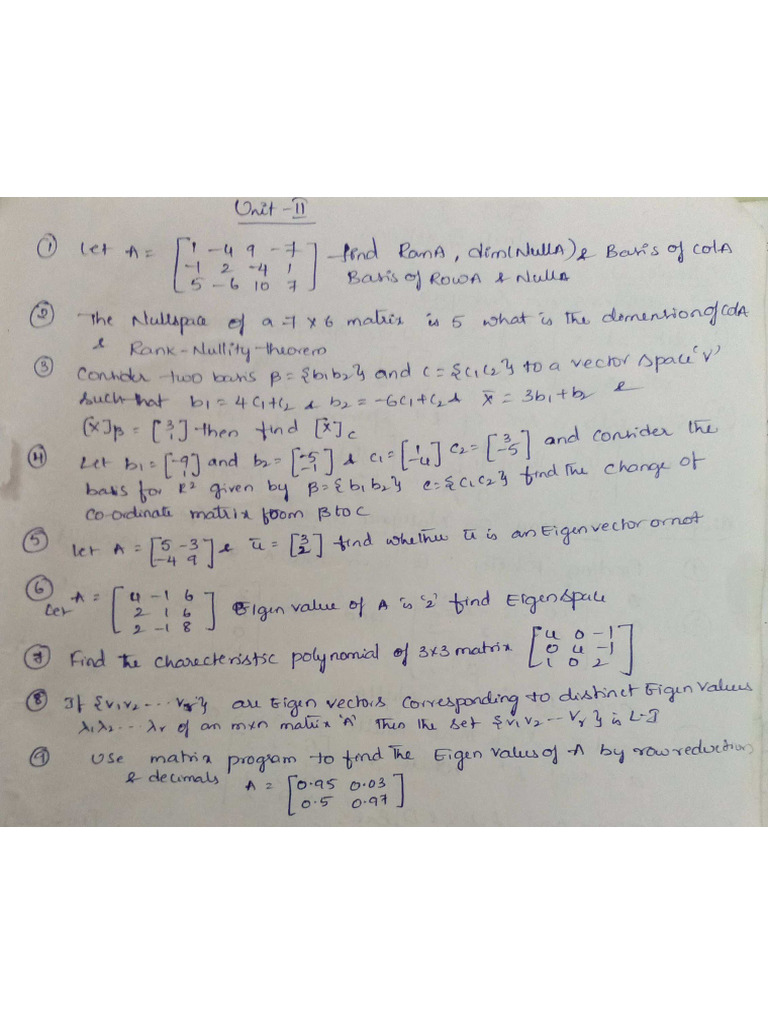 Unit - II
① Let A = [1 -4 9 -7 - find RanA, dim(NullA) & Basis of ColA
-1 2 -4 1 Basis of RowA & NullA
5 -6 10 7]
② The Nullspace of a 7 x 6 matrix is 5 what is the demension of ColA
& Rank-Nullity-theorem
③ Consider two basis β = {b1 b2} and C = {C1 C2} to a vector space 'V'
such that b1 = 4C1+C2 & b2 = -6C1+C2 & x̄ = 3b1+b2 &
[x]β = [3 1] then find [x̄]C
④ Let b1 = [-9 1] and b2 = [-5 -1] & C1 = [1 -4] C2 = [3 -5] and consider the
basis for R² given by β = {b1 b2} C = {C1 C2} find the change of
co-ordinate matrix from β to C
⑤ Let A = [5 -3 -4 9] & ū = [3 2] find whether ū is an Eigen vector or not
⑥ Let A = [4 -1 6 Eigen value of A is '2' find Eigen space
2 1 6
2 -1 8]
⑦ Find the charecteristic polynomial of 3x3 matrix [4 0 -1
0 4 -1
1 0 2]
⑧ If {V1 V2 --- Vr} are Eigen vectors corresponding to distinct Eigen values
λ1 λ2 ... λr of an mxn matrix 'A' Then the set {V1 V2 -- Vr} is L-I
⑨ Use matrix program to find the Eigen values of A by row reduction
& decimals A = [0.95 0.03
0.5 0.97]